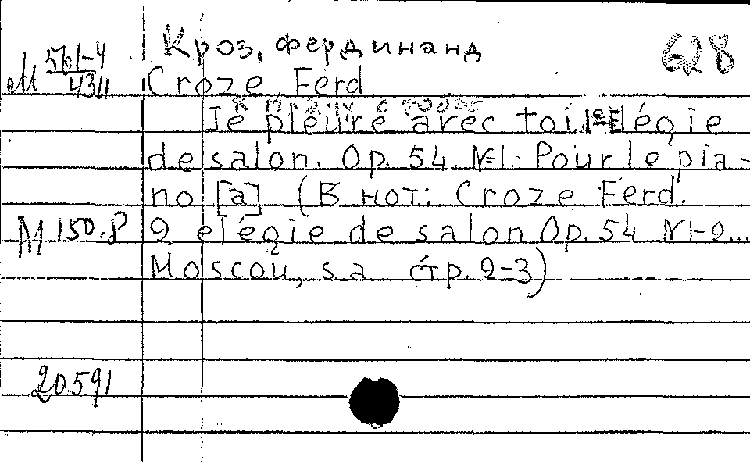 Кроз, Фердинанд
628
М 561-4/4311
Croze Ferd
Je pleure avec toi. 1-e Elégie
de salon. Op. 54 №1. Pour le pia-
no [а] (В нот: Croze Ferd.
М 150.8
2 elégie de salon Op. 54 №1-2...
Moscou, s a стр. 2-3)
20591